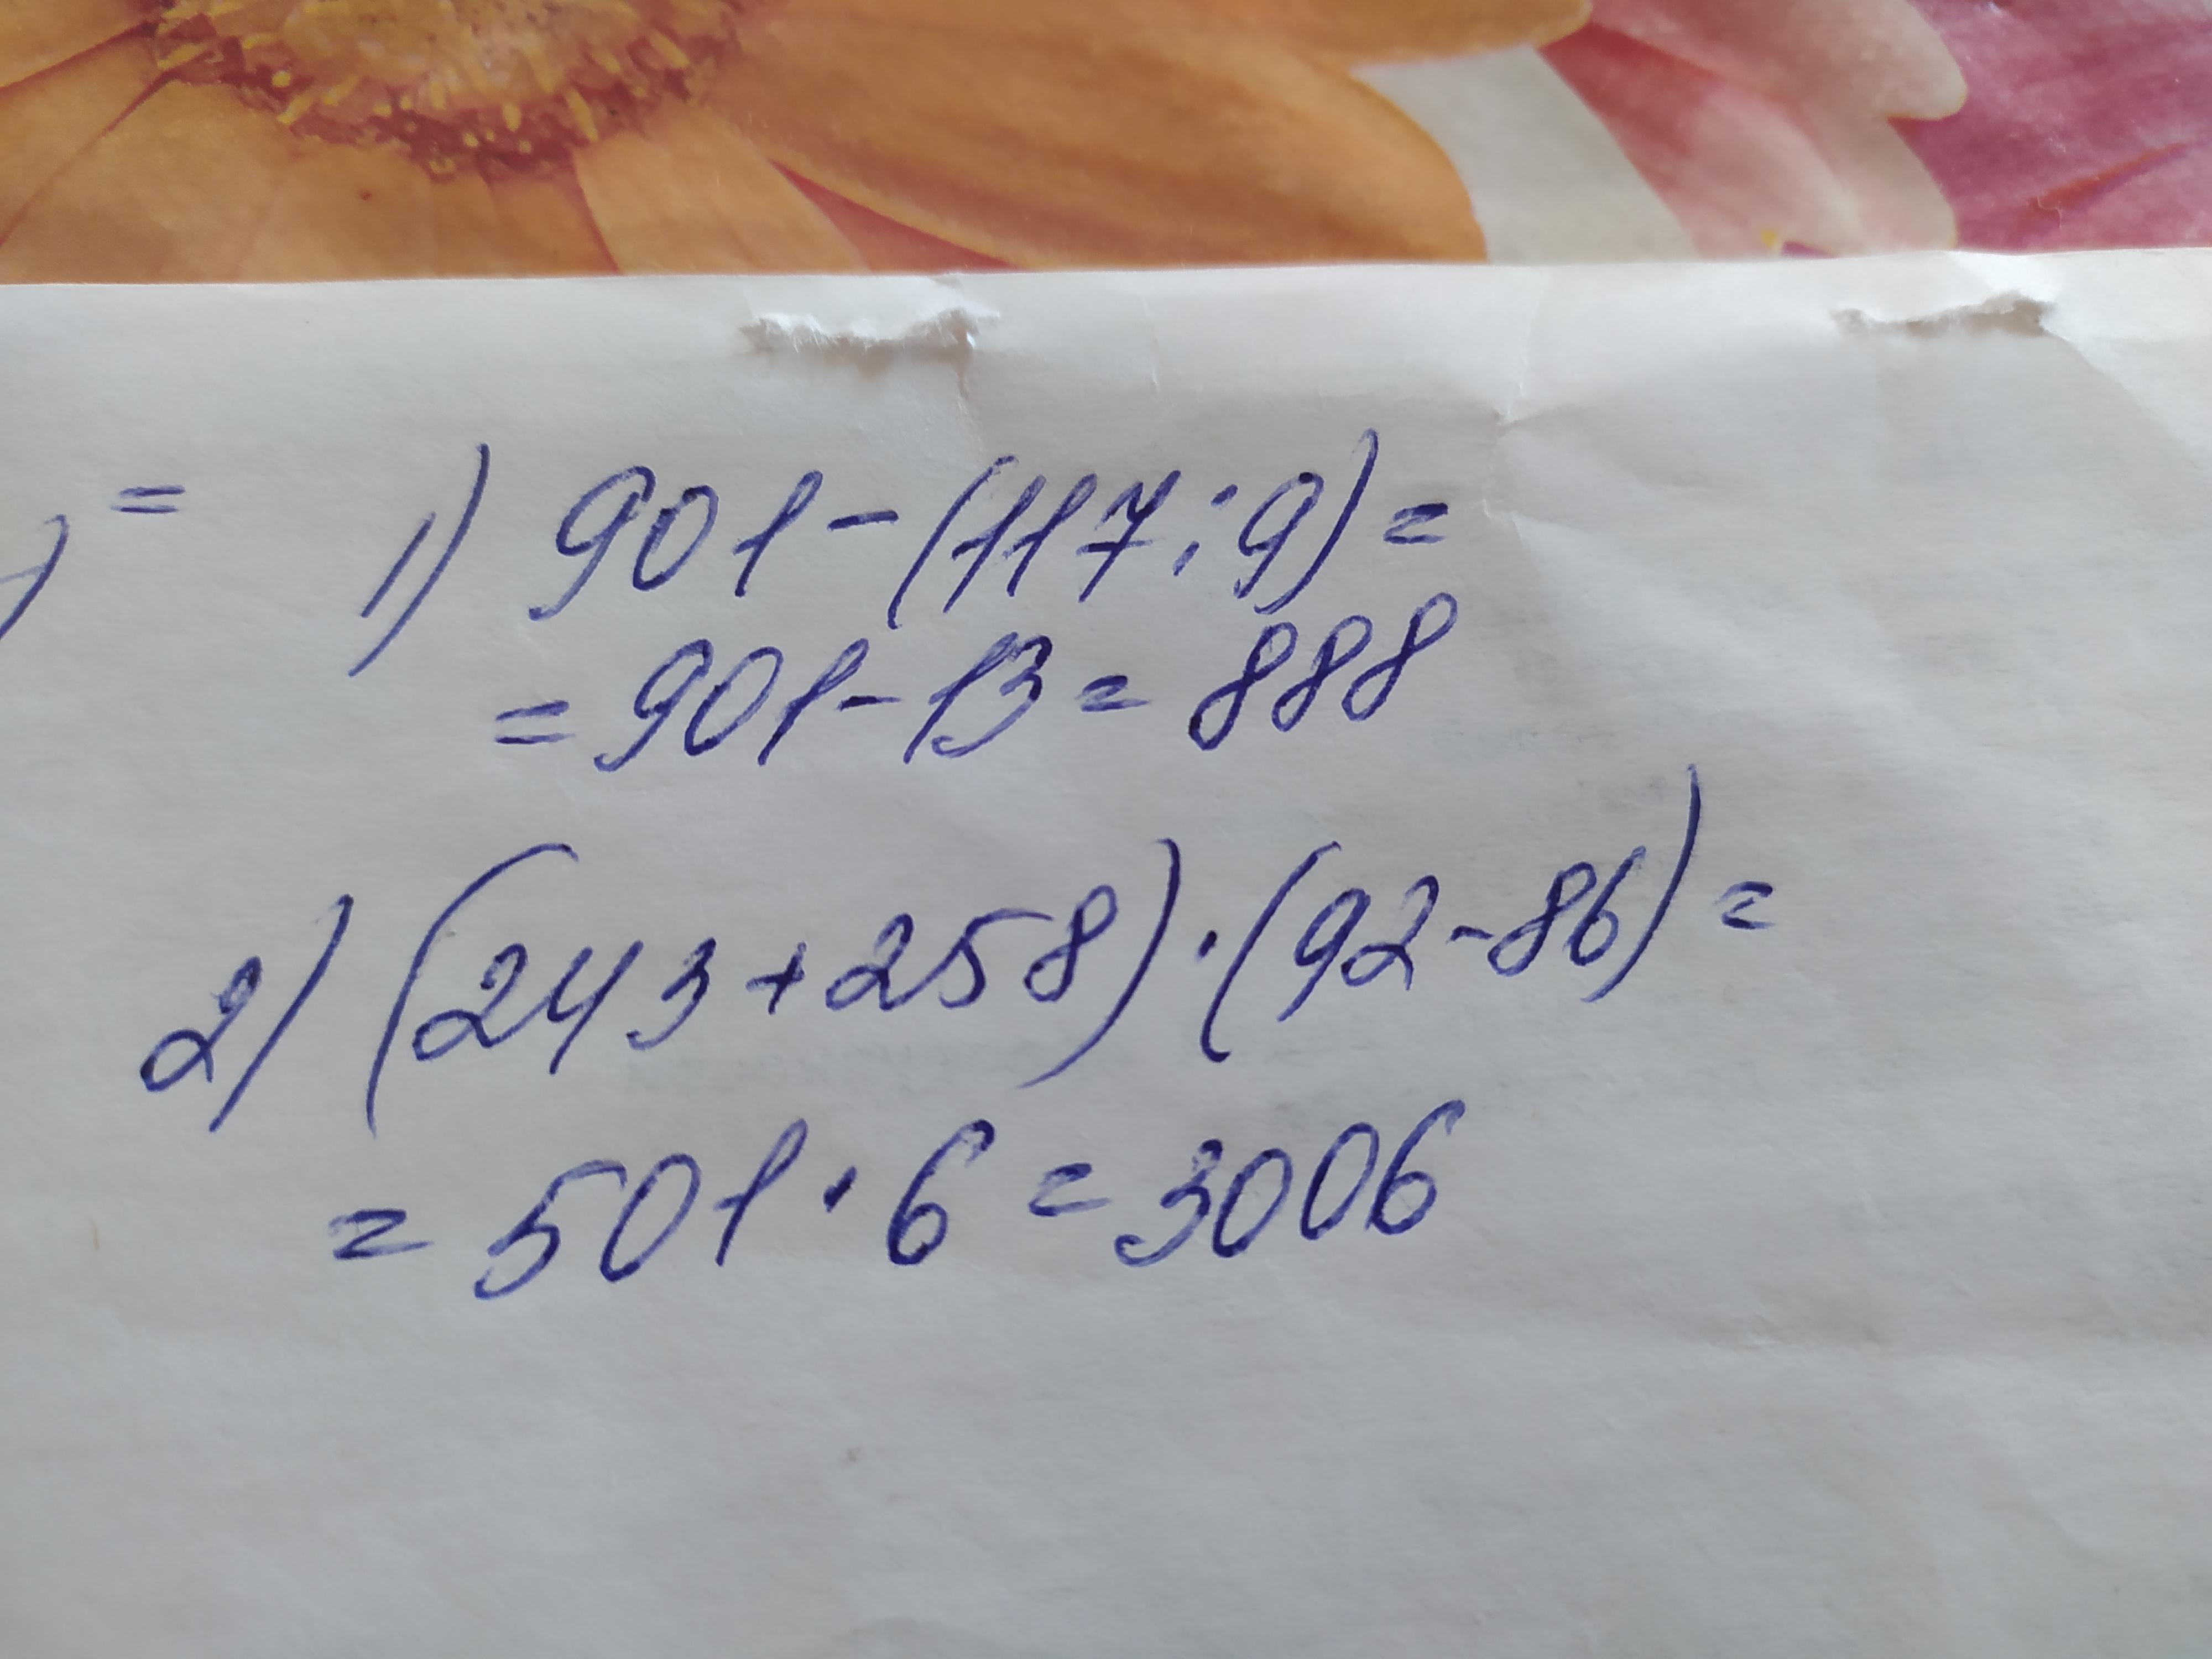 ) = 1) 901 - (117 : 9) =
= 901 - 13 = 888
2) (243 + 258) · (92 - 86) =
= 501 · 6 = 3006